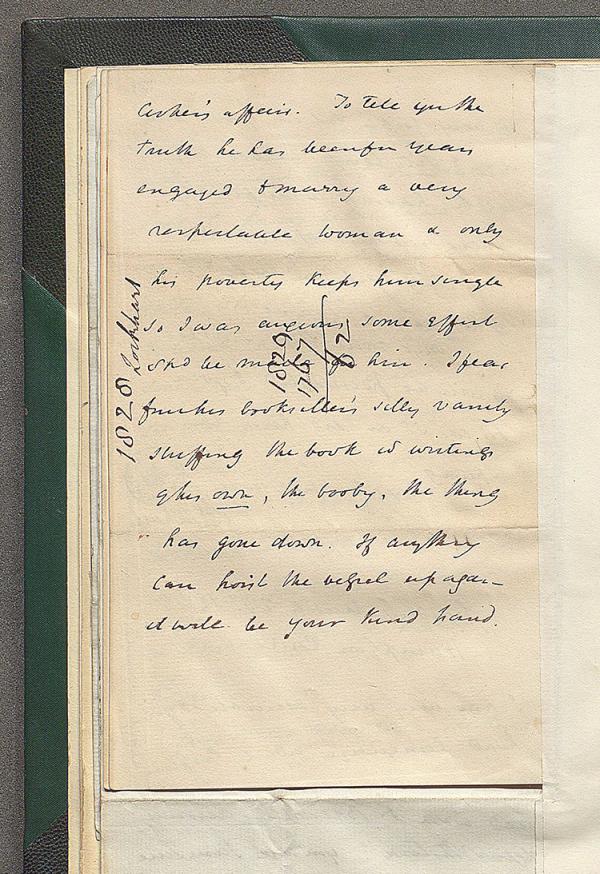 affair. To tell you the
truth he has been for years
engaged to marry a very
respectable woman & only
his poverty keeps him single
so I was anxious some effort
shd be made for him. I fear
from his bookseller's silly vanity
stuffing the book wt writings
of his own, the booby, the thing
has gone down. If anything
can hoist the vessel up again
it will be your kind hand.
1828 Lockhart
1829
1767
62